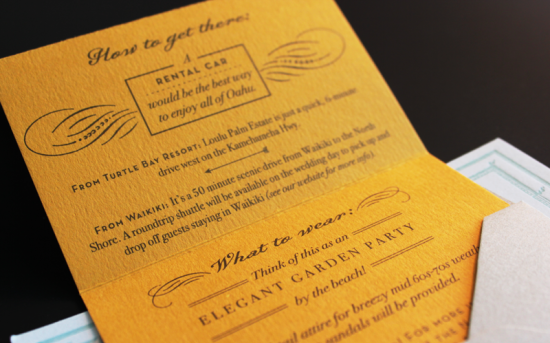 How to get there:
A
RENTAL CAR
would be the best way
to enjoy all of Oahu.
FROM TURTLE BAY RESORT: Loulu Palm Estate is just a quick, 6-minute
drive west on the Kamehameha Hwy.
FROM WAIKIKI: It's a 50 minute scenic drive from Waikiki to the North
Shore. A roundtrip shuttle will be available on the wedding day to pick up and
drop off guests staying in Waikiki (see our website for more info).
What to wear:
Think of this as an
ELEGANT GARDEN PARTY
by the beach!
attire for breezy mid 60s-70s
will be provided.
FOR MORE